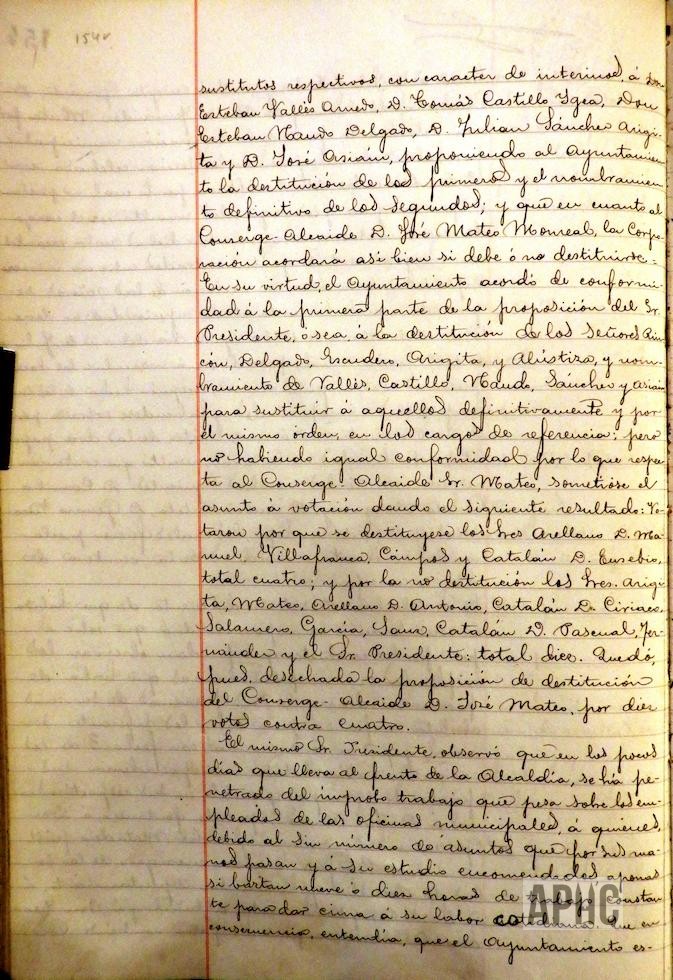 154v
sustitutos respectivos, con caracter de interinos, á Don
Esteban Vallés Arnedo, D. Tomás Castillo Igea, Don
Esteban Naudo Delgado, D. Julian Sánchez Arigi-
ta y D. José Asiáin, proponiendo al Ayuntamien-
to la destitución de los primeros y el nombramien-
to definitivo de los segundos; y que en cuanto al
Conserge-Alcaide D. José Mateo Monreal, la Corpo-
ración acordará asi bien si debe ó no destituirse=
En su virtud, el Ayuntamiento acordó de conformi-
dad á la primera parte de la proposición del Sr.
Presidente, ó sea á la destitución de los señores Rin-
cón, Delgado, Escudero, Arigita, y Alústiza, y nom-
bramiento de Vallés, Castillo, Naudo, Sánchez y Asiáin
para sustituir á aquellos definitivamente y por
el mismo órden, en los cargos de referencia; pero
no habiendo igual conformidad por lo que respec-
ta al Conserge-Alcaide Sr. Mateo, sometióse el
asunto á votación dando el siguiente resultado: Vo-
taron por que se destituyese los Sres Arellano D. Ma-
nuel, Villafranca, Cámpos y Catalán D. Eusebio,
total cuatro; y por la no destitución los Sres. Arigi-
ta, Mateo, Arellano D. Antonio, Catalán D. Ciriaco,
Salamero, García, Sanz, Catalán D. Pascual, Fer-
nández y el Sr. Presidente: total diez. Quedó,
pues, desechada la proposición de destitución
del Conserge-Alcaide D. José Mateo, por diez
votos contra cuatro.
El mismo Sr. Presidente, observó que en los pocos
días que lleva al frente de la Alcaldía, se há pe-
netrado del ímprobo trabajo que pesa sobre los em-
pleados de las oficinas municipales, á quienes,
debido al sin número de asuntos que por sus ma-
nos pasan y á su estudio encomendados apenas
si bastan nueve ó diez horas de trabajo constan-
te para dar cima á su labor cotidiana. Que en
consecuencia, entendía, que el Ayuntamiento es-
APHC